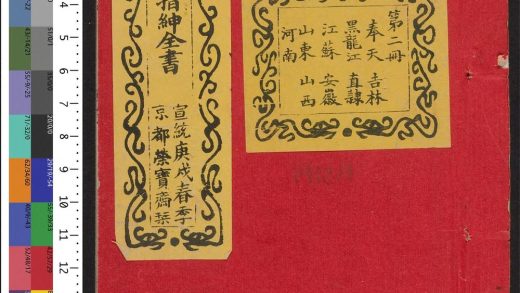 第二冊
奉天 吉林
黑龍江 直隸
江蘇 安徽
山東 山西
河南
搢紳全書
宣統庚戌春季
京都榮寶齋琹
4
5
6
7
8
9
10
11
12